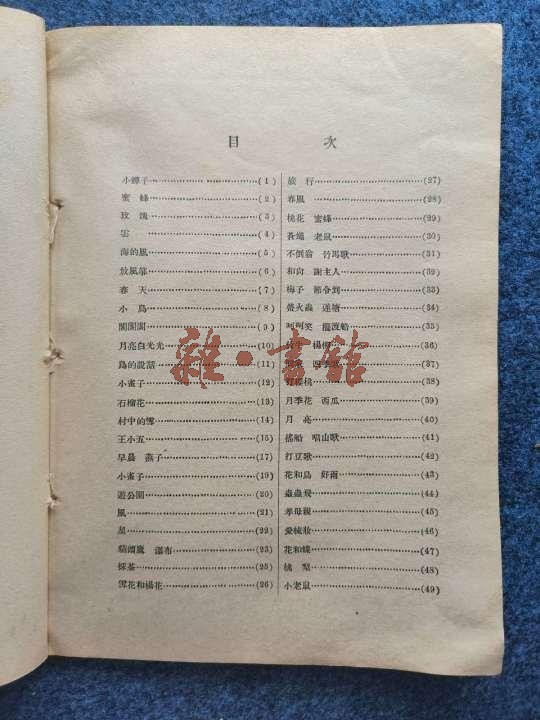 目 次
小獅子(1)
蜜 蜂(2)
玫 瑰(3)
雲(4)
海的風(5)
放風箏(6)
春 天(7)
小 鳥(8)
閣閣閣(9)
月亮白光光(10)
鳥的說話(11)
小雀子(12)
石榴花(13)
村中的雪(14)
王小五(15)
早晨 燕子(17)
小雀子(19)
遊公園(20)
風(21)
星(22)
貓頭鷹 瀑布(23)
採茶(25)
雪花和楊花(26)
旅 行(27)
春風(28)
桃花 蜜蜂(29)
蒼蠅 老鼠(30)
不倒翁 竹馬歌(31)
和尚 謝主人(32)
梅子 節令到(33)
螢火蟲 蓮塘(34)
呵呵笑 擺渡船(35)
楊柳(36)
四季歌(37)
櫻桃(38)
月季花 西瓜(39)
月 亮(40)
搖船 唱山歌(41)
打豆歌(42)
花和鳥 好雨(43)
蟲蟲飛(44)
孝母親(45)
愛梳妝(46)
花和蝶(47)
桃 梨(48)
小老鼠(49)
雜·書館